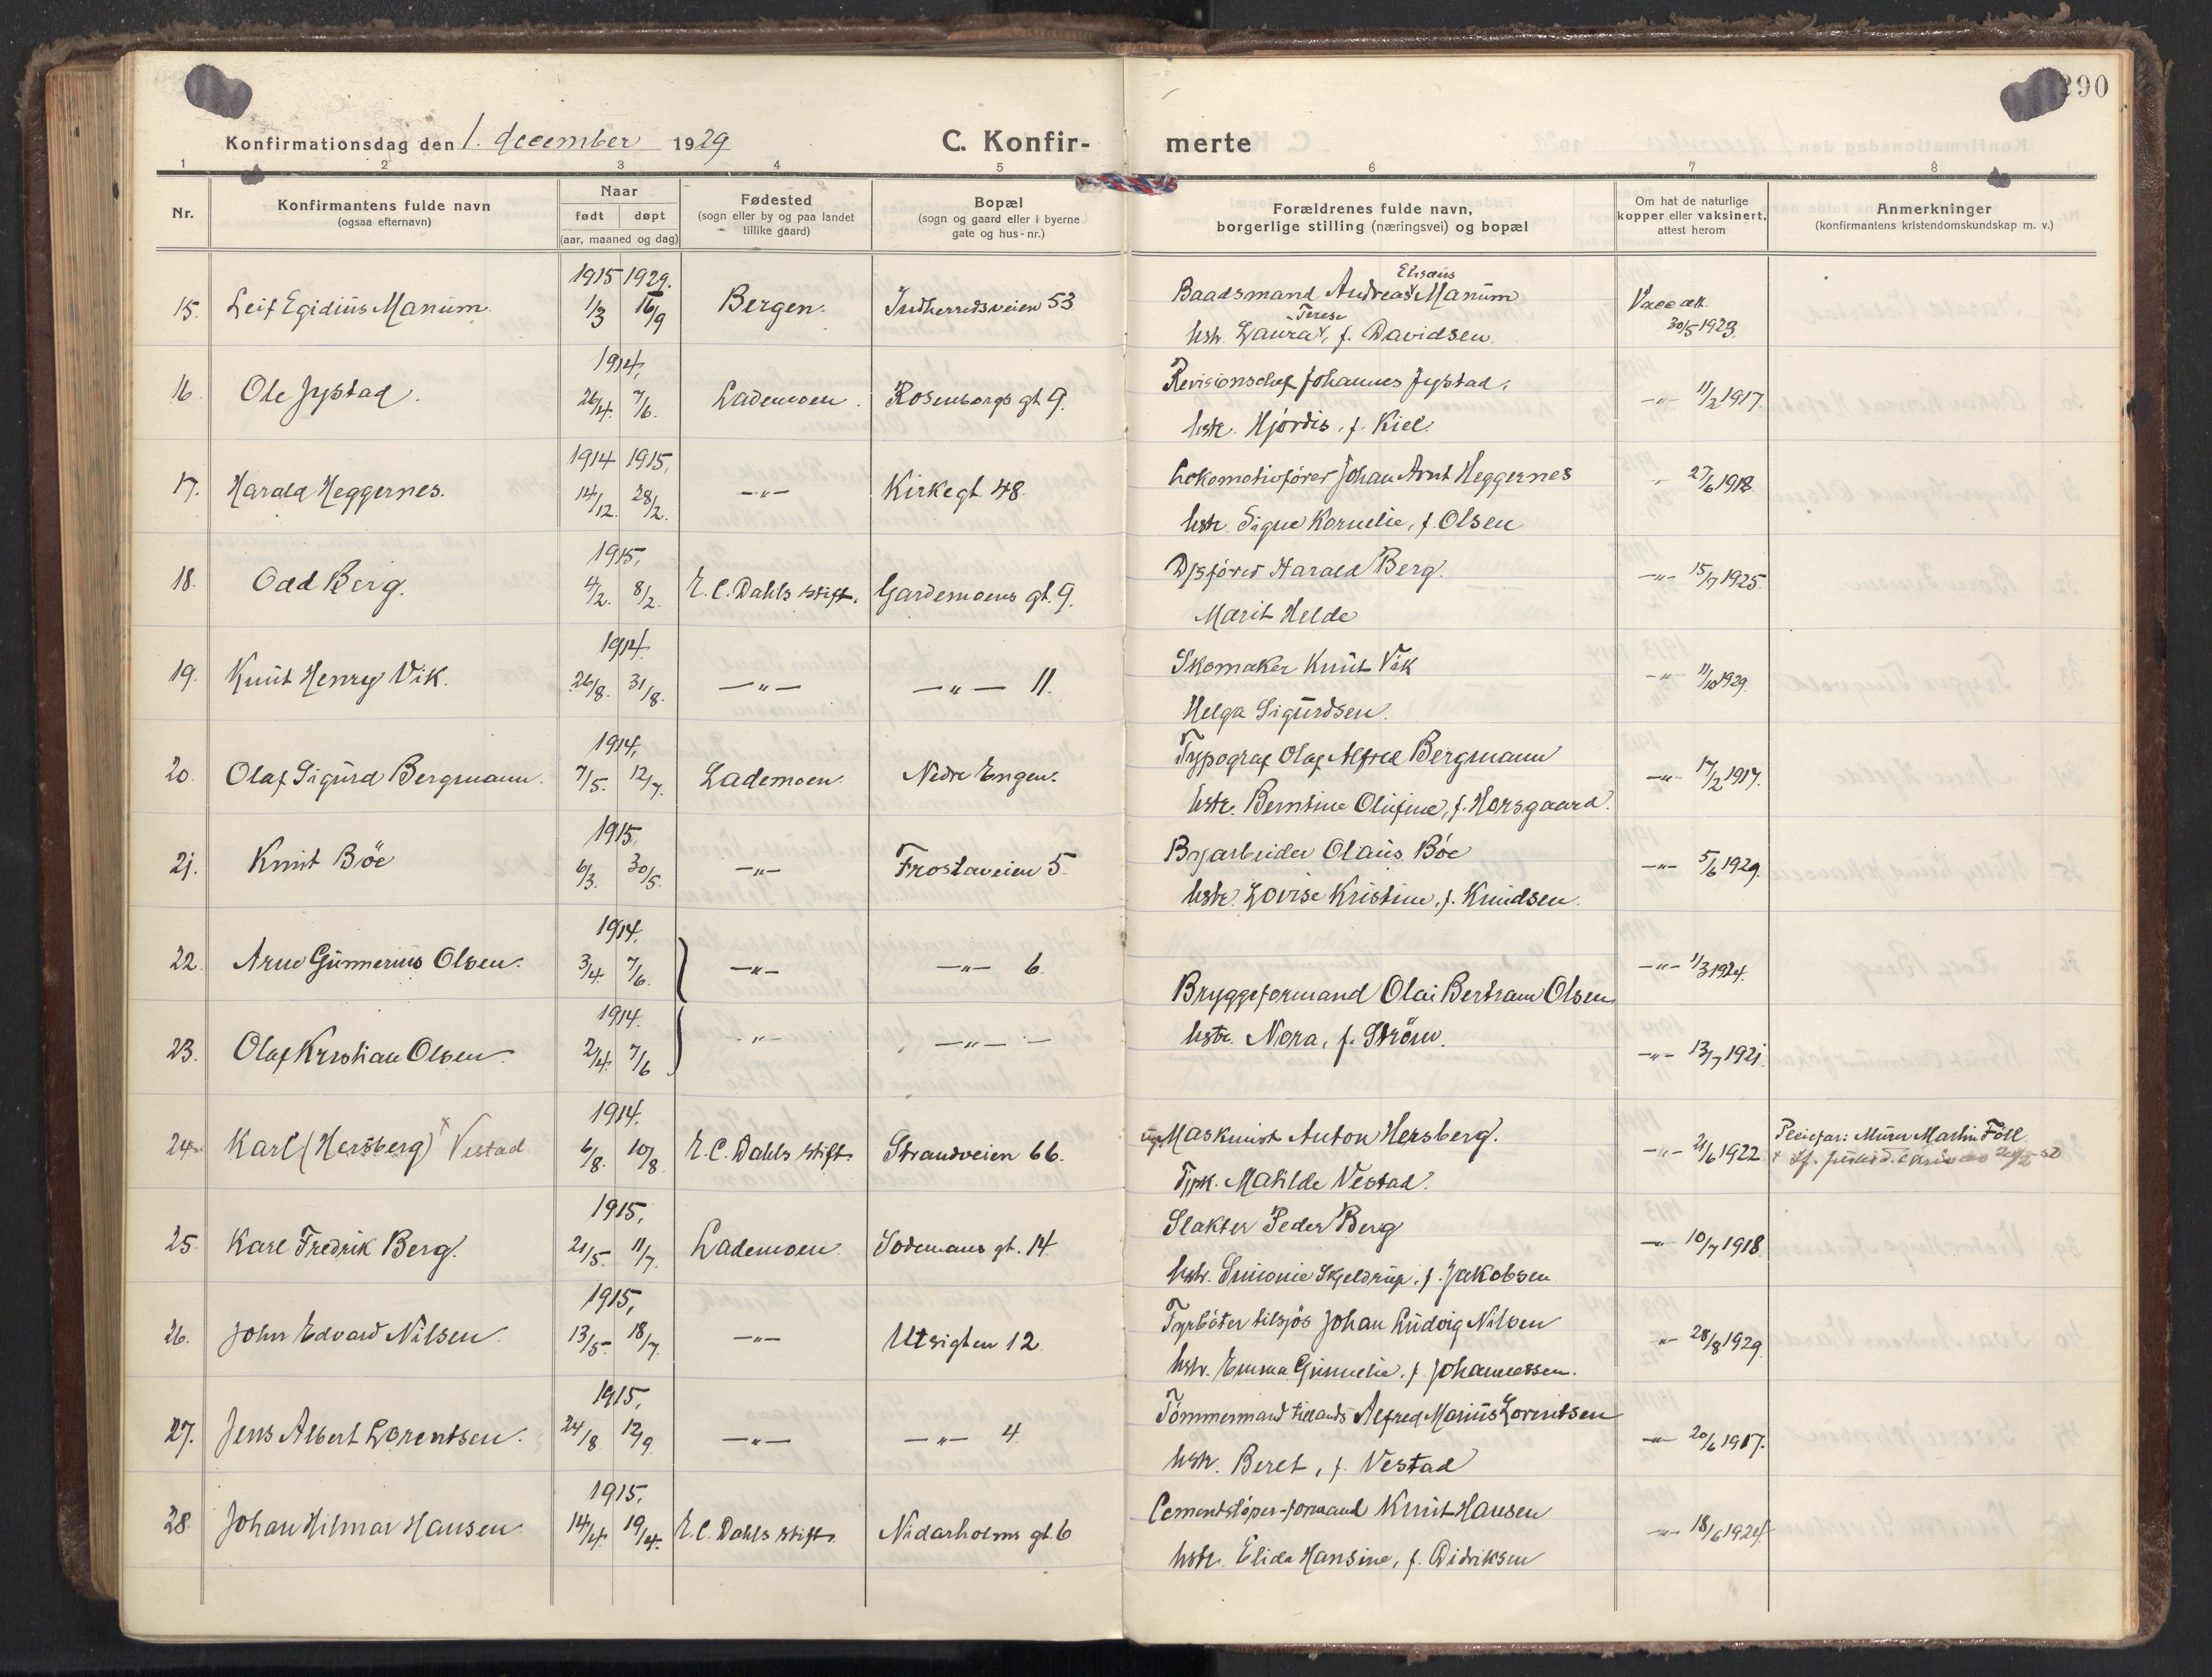 290
Konfirmationsdag den 1. december 1929
C. Konfir-
merte
1 2 3 4 5 6 7 8
Nr.
Konfirmantens fulde navn
(ogsaa efternavn)
Naar
født døpt
(aar, maaned og dag)
Fødested
(sogn eller by og paa landet
tillike gaard)
Bopæl
(sogn og gaard eller i byerne
gate og hus-nr.)
Forældrenes fulde navn,
borgerlige stilling (næringsvei) og bopæl
Om hat de naturlige
kopper eller vaksinert,
attest herom
Anmerkninger
(konfirmantens kristendomskundskap m. v.)
1915 1929.
15. Leif Egidius Manum 1/3 16/9 Bergen. Indherredsveien 53
Elisæus
Baadsmand Andreas Manum
Terese
hstr. Laura, f. Davidsen.
Vacc. att.
30/5 1923.
1914.
16. Ole Jystad. 26/4. 7/6. Lademoen. Rosenborgs gt 9.
Revisionschef Johannes Jystad.
hstr. Hjördis, f. Kiel.
-"- 11/2 1917.
1914 1915.
17. Harald Heggernes. 14/12. 28/2. -"- Kirkegt 48.
Lokomotivfører Johan Arnt Heggernes
hstr. Signe Kornelie, f. Olsen
27/6 1918.
1915.
18. Odd Berg. 4/2. 8/2. E. C. Dahls stift. Gardemoens gt. 9.
D/sfører Harald Berg.
Marit Helde
-"- 15/7 1925.
1914.
19. Knut Henry Vik. 26/8. 31/8. -"- -"- 11.
Skomaker Knut Vik
Helga Sigurdsen.
-"- 11/10 1929.
1914.
20. Olaf Sigurd Bergmann. 7/5. 12/7. Lademoen. Nedre Engen.
Typograf Olaf Alfred Bergmann
hstr. Berntine Olufine, f. Horsgaard.
-"- 17/2 1917.
1915.
21. Knut Böe 6/3. 30/5. -"- Frostaveien 5.
Bryarbeider Olaus Böe
hstr. Lovise Kristine, f. Knudsen.
-"- 5/6 1929.
1914.
22. Arne Gunnerius Olsen. 3/4. 7/6. -"- -"- 6.
-"- 1/3 1924.
Bryggeformand Olai Bertram Olsen
1914.
23. Olaf Kristian Olsen. 2/4. 7/6 -"- -"-
hstr. Nora, f. Ström.
-"- 13/7 1921.
1914.
24. Karl (Hersberg) × Vestad 6/8. 10/8. E. C. Dahls stift. Strandveien 66.
ugMaskinist Anton Hersberg.
Tjpk. Matilde Vestad.
-"- 21/6 1922
Pleiefar: Murer Martin Föll.
1915.
25. Karl Fredrik Berg. 21/5. 11/7. Lademoen. Sodemans gt. 14.
Slakter Peder Berg
hstr. Simonie Skjeldrup, f. Jakobsen
-"- 10/7 1918.
1915.
26. John Edvard Nilsen. 13/5. 18/7. -"- Utsigten 12.
Fyrböter tilsjös Johan Ludvig Nilsen
hstr. Emma Gunnelie, f. Johannessen.
-"- 28/8 1929.
1915.
27. Jens Albert Lorentsen. 24/8 12/9. -"- -"- 4.
Tömmermand tillands Alfred Marius Lorentsen
hstr. Beret, f. Vestad
-"- 20/6 1917.
1915.
28. Johan Hilmar Hansen. 14/4. 19/4. E. C. Dahls stift. Nidarholms gt 6
Cementstöper-formand Knut Hansen
hstr. Elida Hansine, f. Didriksen
-"- 18/6 1924.